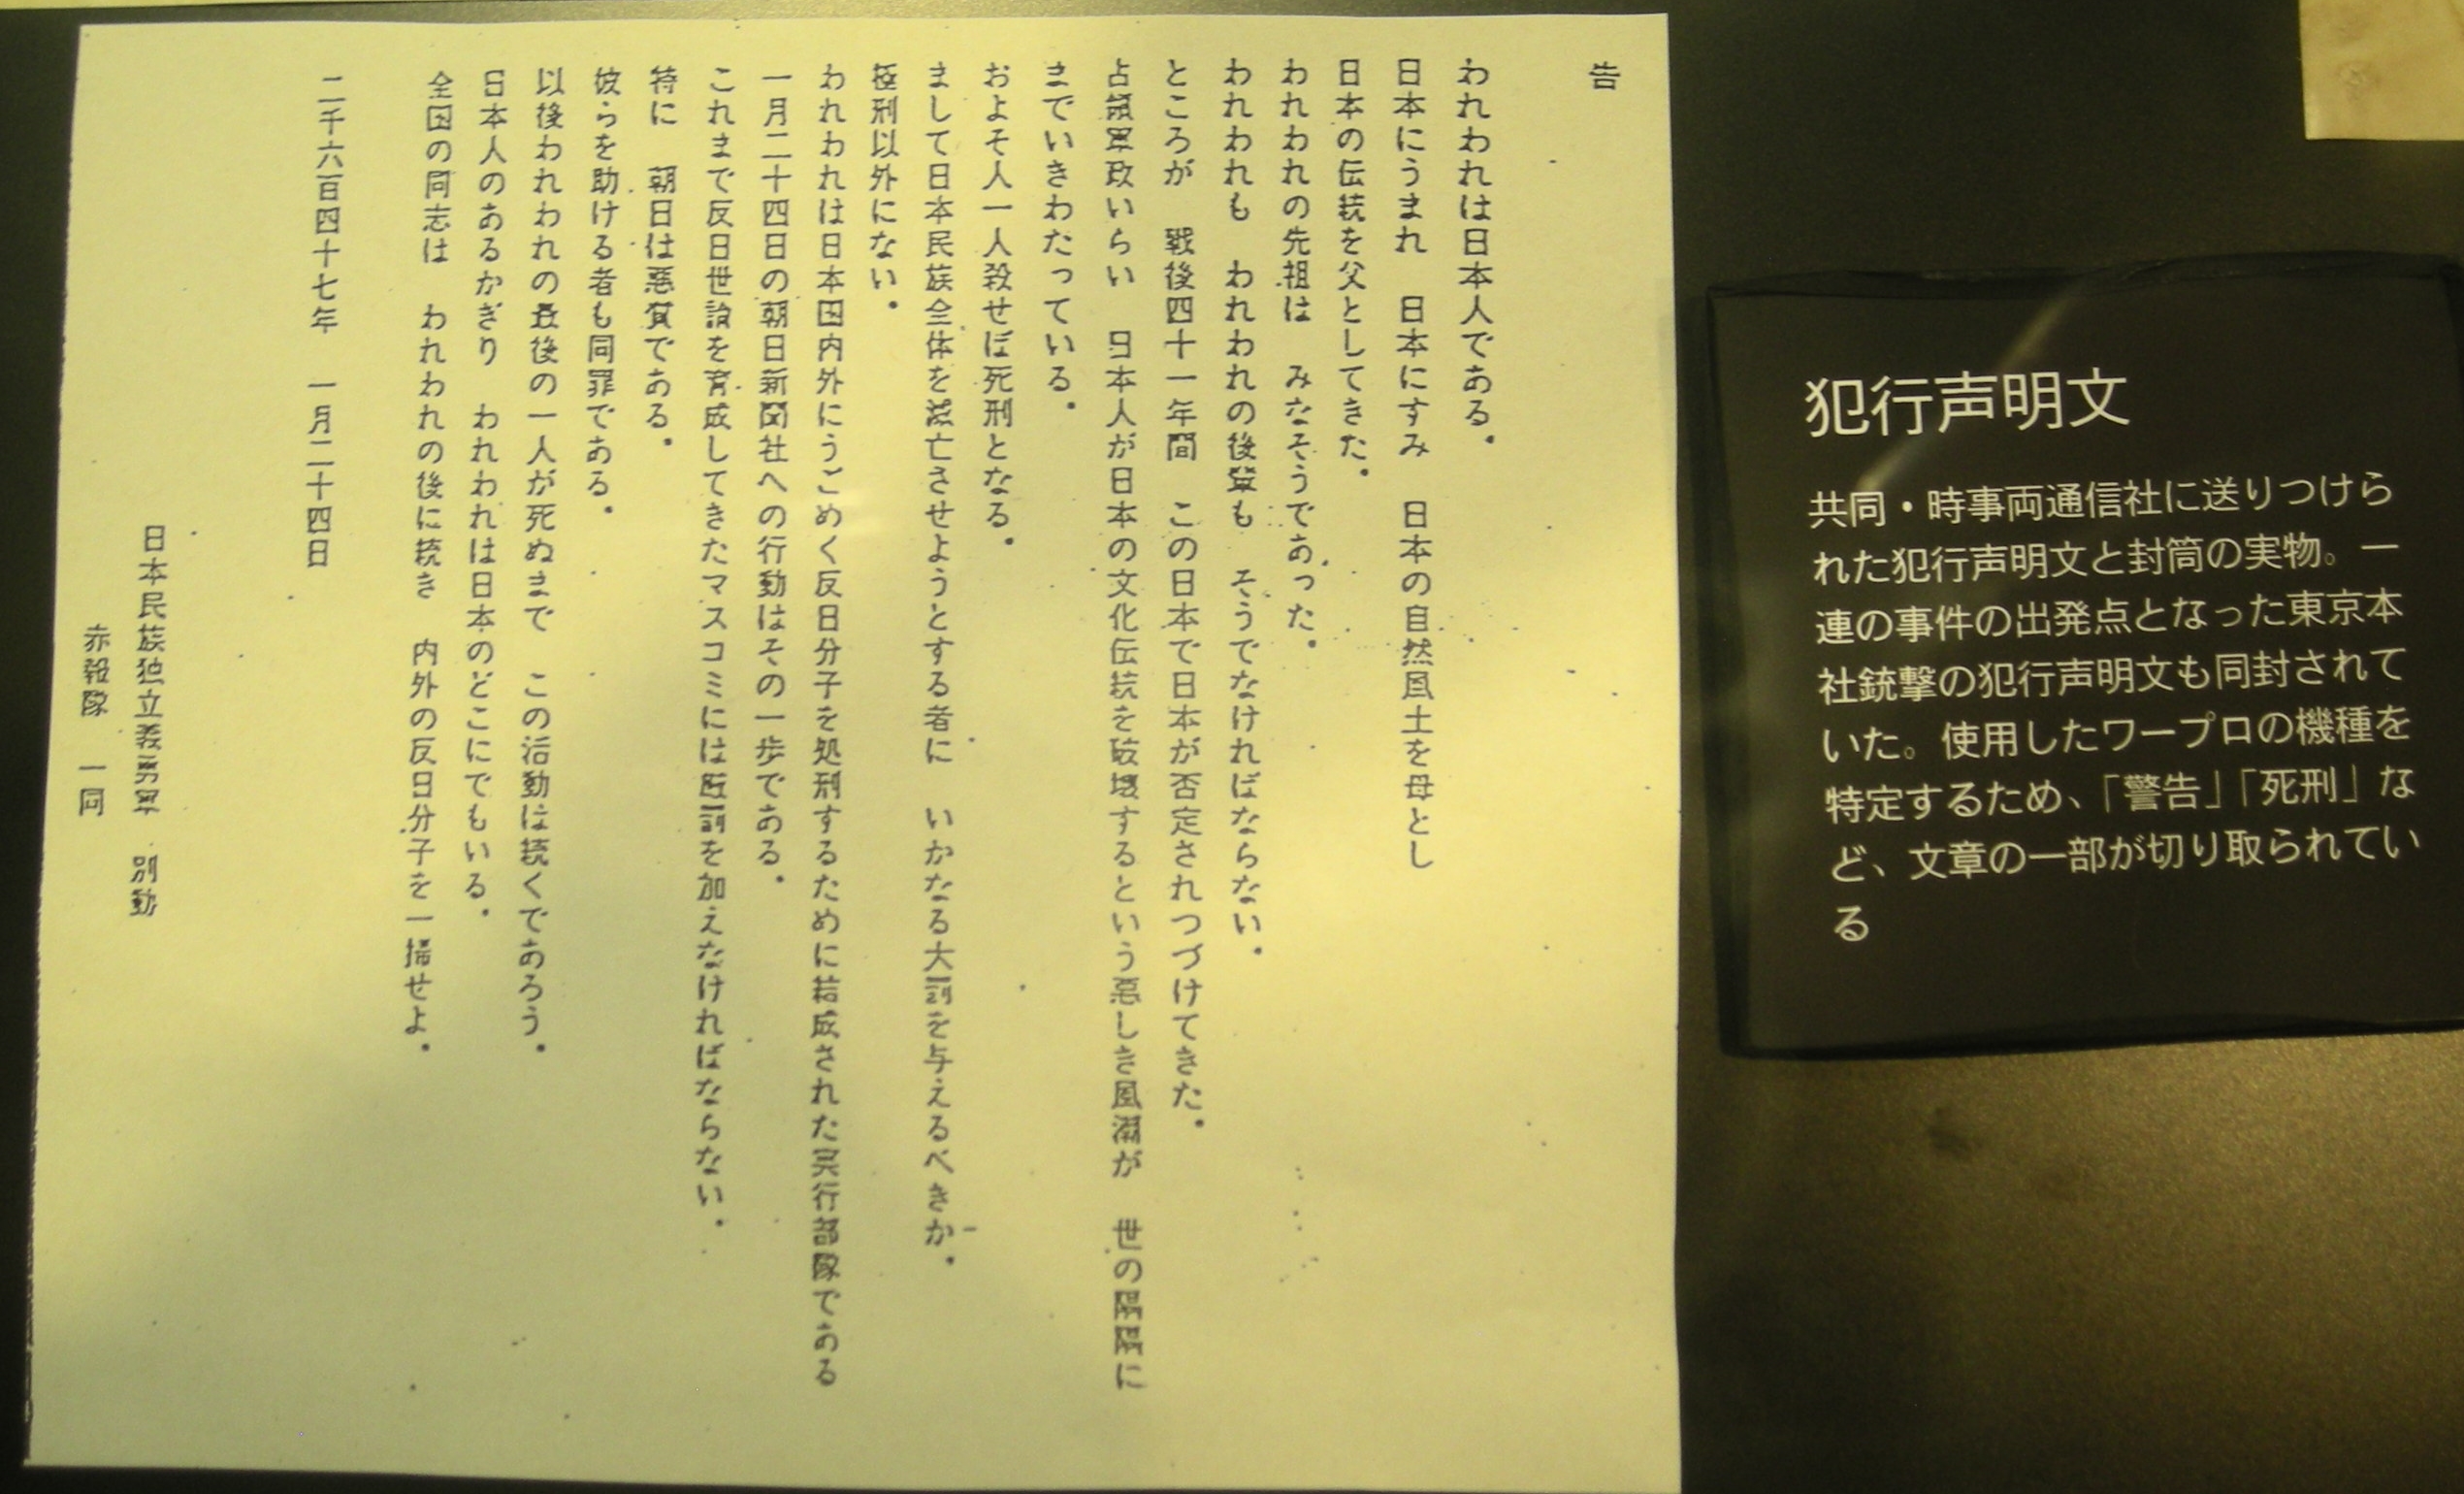 告
われわれは日本人である.
日本にうまれ　日本にすみ　日本の自然風土を母とし
日本の伝統を父としてきた.
われわれの先祖は　みなそうであった.
われわれも　われわれの後輩も　そうでなければならない.
ところが　戦後四十一年間　この日本で日本が否定されつづけてきた.
占領軍政いらい　日本人が日本の文化伝統を破壊するという悪しき風潮が　世の隅隅に
までいきわたっている.
およそ人一人殺せば死刑となる.
まして日本民族全体を滅亡させようとする者に　いかなる大罰を与えるべきか.
極刑以外にない.
われわれは日本国内外にうごめく反日分子を処刑するために結成された実行部隊である
一月二十四日の朝日新聞社への行動はその一歩である.
これまで反日世論を育成してきたマスコミには厳罰を加えなければならない.
特に　朝日は悪質である.
彼らを助ける者も同罪である.
以後われわれの最後の一人が死ぬまで　この活動は続くであろう.
日本人のあるかぎり　われわれは日本のどこにでもいる.
全国の同志は　われわれの後に続き　内外の反日分子を一掃せよ.
二千六百四十七年　一月二十四日
日本民族独立義勇軍　別動
赤報隊　一同
犯行声明文
共同・時事両通信社に送りつけら
れた犯行声明文と封筒の実物。一
連の事件の出発点となった東京本
社銃撃の犯行声明文も同封されて
いた。使用したワープロの機種を
特定するため、「警告」「死刑」な
ど、文章の一部が切り取られてい
る